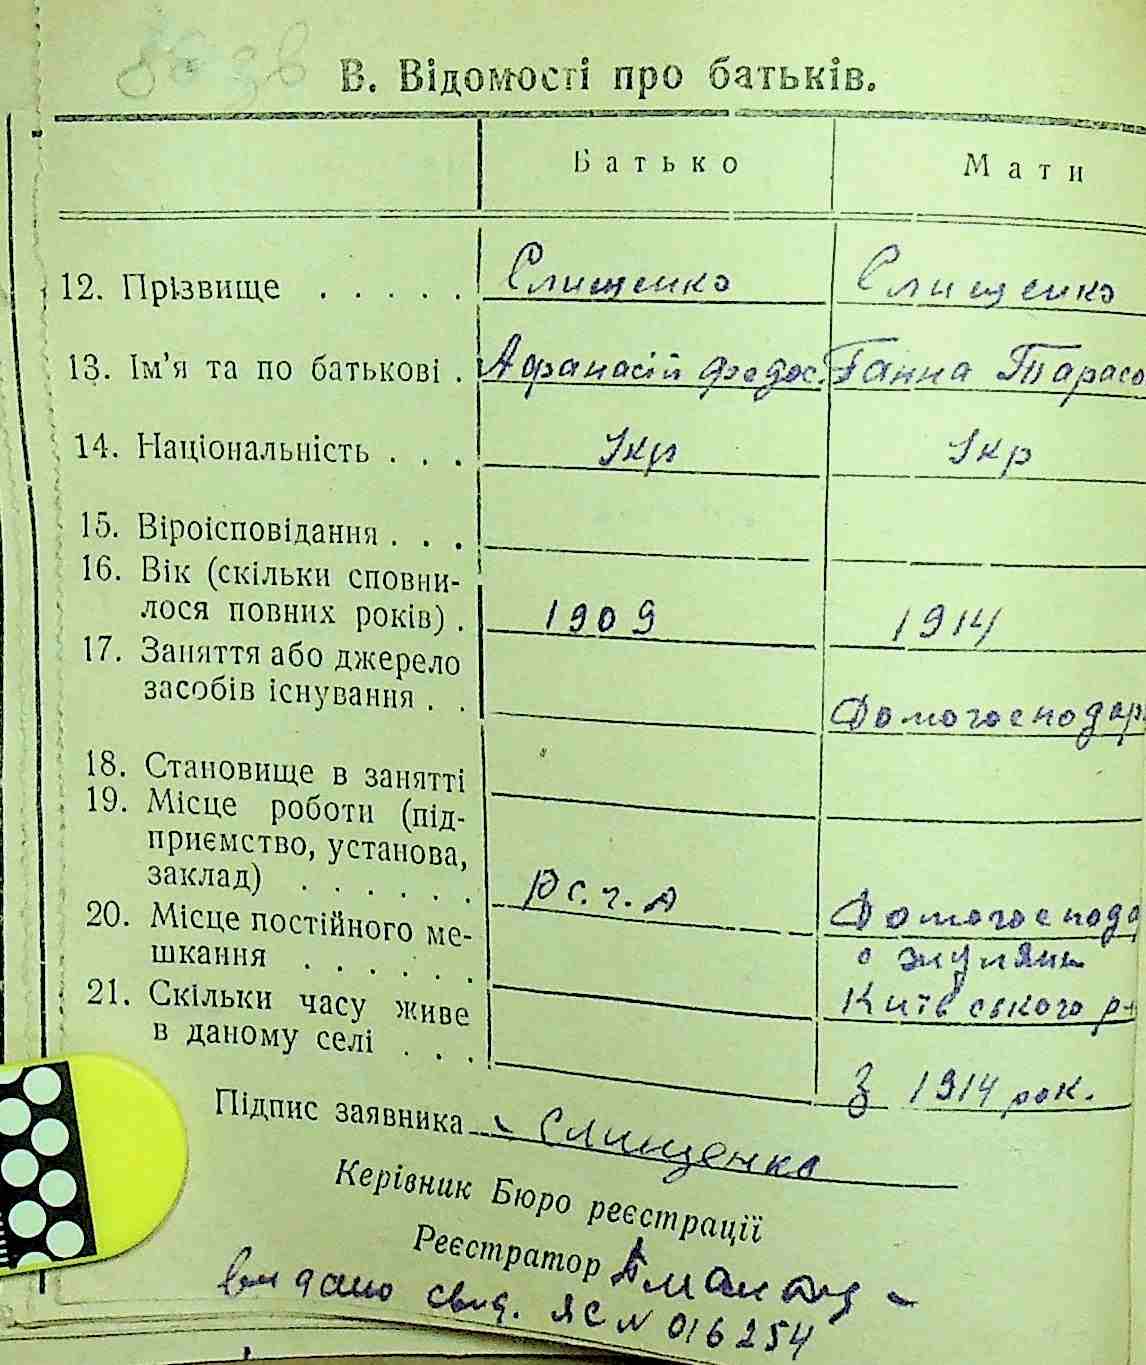 В. Відомості про батьків.
Батько Мати
12. Прізвище . . . . . Слищенко Слищенко
13. Ім'я та по батькові . Афанасій Федос. Ганна Тарасо
14. Національність . . . Укр Укр
15. Віроісповідання . . .
16. Вік (скільки сповни-
лося повних років) . 1909 1914
17. Заняття або джерело
засобів існування . . Домогосподар
18. Становище в занятті
19. Місце роботи (під-
приємство, установа,
заклад) . . . . . . Р.С.Ч.А Домогоспода
20. Місце постійного ме- с Жуляни
шкання . . . . . . Київського р-
21. Скільки часу живе
в даному селі . . . З 1914 рок.
Підпис заявника Слищенко
Керівник Бюро реєстрації
Реєстратор
видано свид. ЯС N 016254